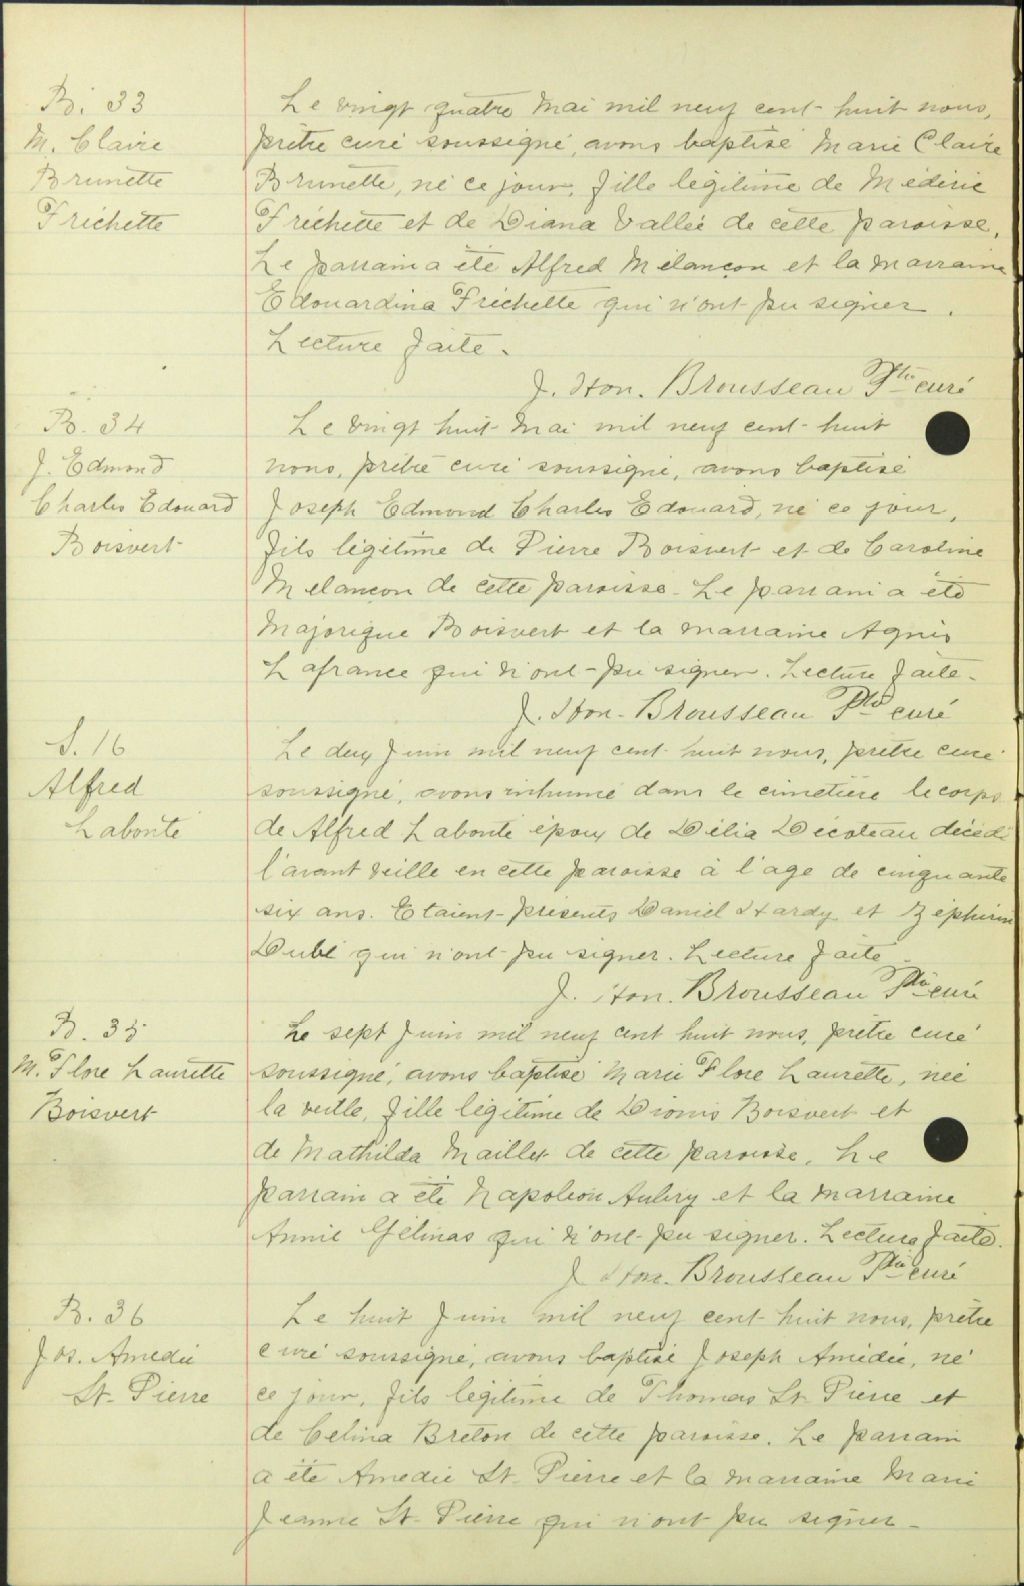 B. 33
M. Claire
Brunette
Fréchette
Le vingt quatre Mai mil neuf cent huit nous,
prêtre curé soussigné, avons baptisé Marie Claire
Brunette, né ce jour, fille légitime de Médéric
Fréchette et de Diana Vallée de cette paroisse.
Le parrain a été Alfred Melançon et la marraine
Edouardina Fréchette qui n'ont pu signer.
Lecture faite.
J. Hon. Brousseau Ptre curé
B. 34
J. Edmond
Charles Edouard
Boisvert
Le vingt huit Mai mil neuf cent huit
nous, prêtre curé soussigné, avons baptisé
Joseph Edmond Charles Edouard, né ce jour,
fils légitime de Pierre Boisvert et de Caroline
Melançon de cette paroisse. Le parrain a été
Majorique Boisvert et la marraine Agnès
Lafrance qui n'ont pu signer. Lecture faite.
J. Hon. Brousseau Ptre curé
S. 16
Alfred
Labonté
Le deux Juin mil neuf cent huit nous, prêtre curé
soussigné, avons inhumé dans le cimetière le corps
de Alfred Labonté époux de Délia Décoteau décédé
l'avant veille en cette paroisse à l'age de cinquante
six ans. Etaient présents Daniel Hardy et Zéphirin
Dubé qui n'ont pu signer. Lecture faite.
J. Hon. Brousseau Ptre curé
B. 35
M. Flore Laurette
Boisvert
Le sept Juin mil neuf cent huit nous, prêtre curé
soussigné, avons baptisé Marie Flore Laurette, née
la veille, fille légitime de Dionis Boisvert et
de Mathilda Maillet de cette paroisse. Le
parrain a été Napoléon Aubry et la marraine
Annie Gélinas qui n'ont pu signer. Lecture faite.
J. Hon. Brousseau Ptre curé
B. 36
Jos. Amedée
St. Pierre
Le huit Juin mil neuf cent huit nous, prêtre
curé soussigné, avons baptisé Joseph Amédée, né
ce jour, fils légitime de Thomas St. Pierre et
de Celina Breton de cette paroisse. Le parrain
a été Amedée St. Pierre et la marraine Marie
Jeanne St. Pierre qui n'ont pu signer.